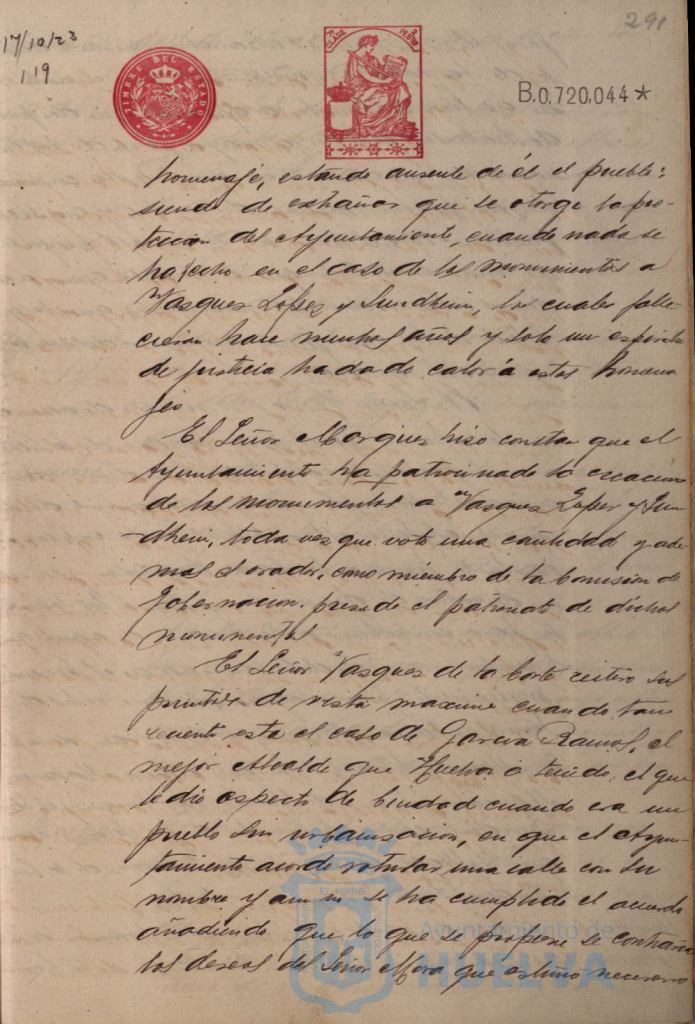 17/10/23
119
291
TIMBRE DEL ESTADO
7ª CLASE
B.0.720,044*
homenaje, estando ausente de él el pueblo:
siendo de extrañar que se otorge la pro-
teccion del Ayuntamiento, cuando nada se
ha hecho en el caso de los monumentos a
Vasques Lopez y Sundheim, los cuales falle-
cieron hace muchos años y solo un espiritu
de justicia ha dado calor á estos homena
jes
El Señor Marques hiso constar que el
Ayuntamiento ha patrocinado la creacion
de los monumentos a Vasques Lopez y Sun
dheim, toda ves que votó una cantidad y ade
mas el orador, como miembro de la Comision de
Gobernacion, preside el patronato de dichos
monumentos
El Señor Vasques de la Corte reitero sus
puntos de vista maxime cuando tan
reciente esta el caso de Garcia Ramos, el
mejor Alcalde que Huelva a tenido, el que
le dio aspecto de Ciudad cuando era un
pueblo sin urbanisacion, en que el Ayun-
tamiento acordo rotular una calle con su
nombre y aun no se ha cumplido el acuerdo
añadiendo que lo que se propone se contraria
los deseos del Señor Mora que estimo necesario
Ayuntamiento de
HUELVA